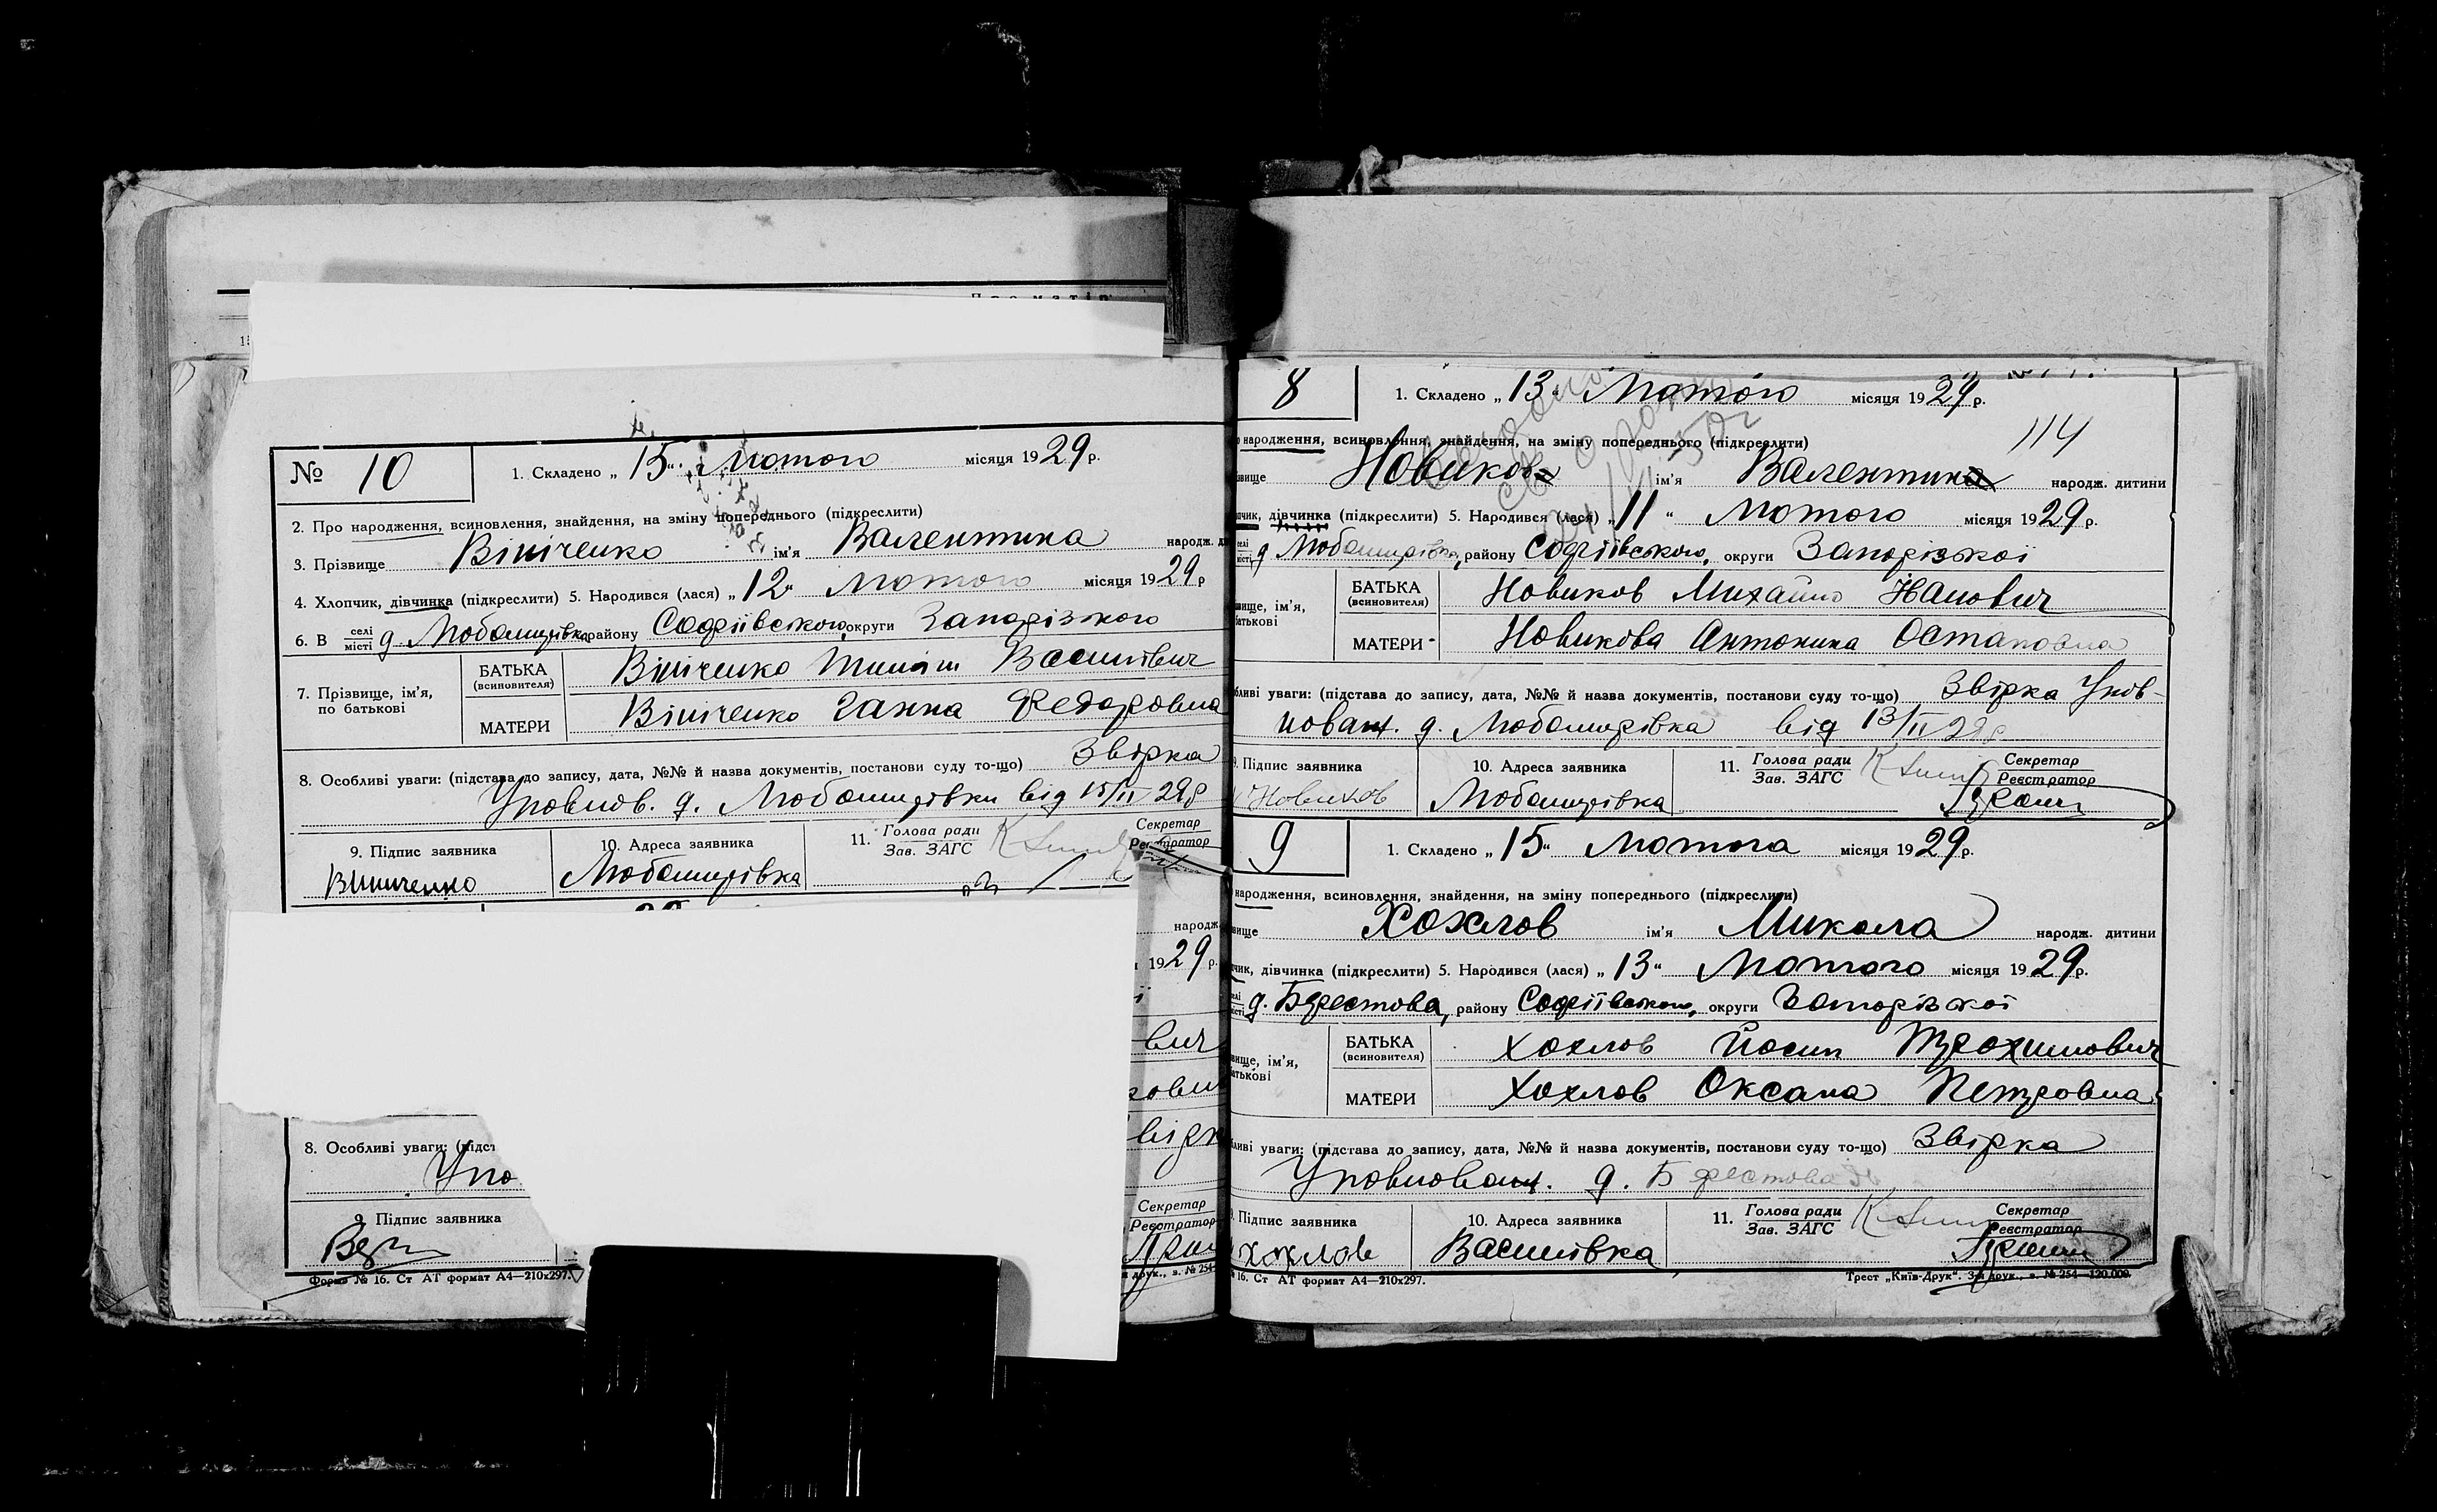 № 10
1. Складено „ 15 “ Лютого місяця 1929 р.
2. Про народження, всиновлення, знайдення, на зміну попереднього (підкреслити)
3. Прізвище Вініченко ім'я Валентина народж.
4. Хлопчик, дівчинка (підкреслити) 5. Народився (лася) „ 12 “ Лютого місяця 1929 р
6. В селі місті д. Любомирівка району Софіївського округи Запорізького
7. Прізвище, ім'я, по батькові
БАТЬКА (всиновителя) Вініченко Василівич
МАТЕРИ Вініченко Ганна Федоровна
8. Особливі уваги: (підстава до запису, дата, №№ й назва документів, постанови суду то-що) Звірка
Уповнов. д. Любомирівки від 15/II 29р
9. Підпис заявника
10. Адреса заявника
11. Голова ради Зав. ЗАГС
Секретар Реєстратор
Виниченко
Любомирівка
народж.
1929 р.
вич
8. Особливі уваги: (підст
Упо
9. Підпис заявника
Секретар
Реєстратор
Форма № 16. Ст АТ формат А4—210х297.
друк., з. № 254
8
1. Складено „ 13 “ Лютого місяця 1929 р.
114
народження, всиновлення, знайдення, на зміну попереднього (підкреслити)
вище Новиков ім'я Валентин народж. дитини
пчик, дівчинка (підкреслити) 5. Народився (лася) „ 11 “ Лютого місяця 1929 р.
селі місті д Любомирівка, району Софіївського, округи Запорізької
вище, ім'я, батькові
БАТЬКА (всиновителя) Новиков Михайло
МАТЕРИ Новикова Антонина Остаповна
бливі уваги: (підстава до запису, дата, №№ й назва документів, постанови суду то-що) Звірка Упов-
новаж. д. Любомирівка від 13/II 29р
9. Підпис заявника
10. Адреса заявника
11. Голова ради Зав. ЗАГС
Секретар Реєстратор
Новиков
Любомирівка
9
1. Складено „ 15 “ Лютого місяця 1929 р.
народження, всиновлення, знайдення, на зміну попереднього (підкреслити)
вище Хохлов ім'я Микола народж. дитини
пчик, дівчинка (підкреслити) 5. Народився (лася) „ 13 “ Лютого місяця 1929 р.
селі місті д. Берестова, району Софіївського, округи Запорізької
вище, ім'я, батькові
БАТЬКА (всиновителя) Хохлов Йосип Трохимович
МАТЕРИ Хохлов Оксана Петровна
бливі уваги: (підстава до запису, дата, №№ й назва документів, постанови суду то-що) Звірка
Уповноваж. д. Берестова
9. Підпис заявника
10. Адреса заявника
11. Голова ради Зав. ЗАГС
Секретар Реєстратор
Хохлов
Василівка
№ 16. Ст АТ формат А4—210х297.
Трест „Київ-Друк“. 3-я друк., з. № 254—120.000.